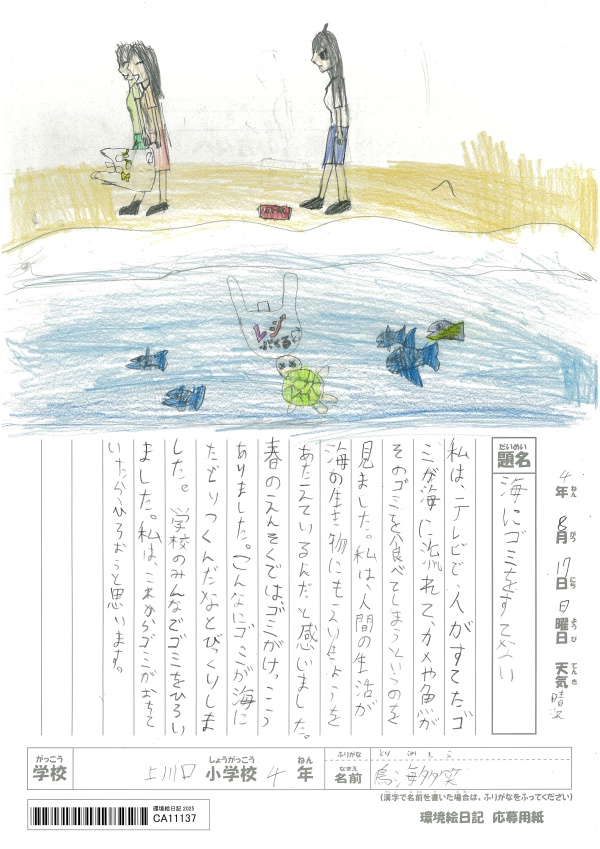 レジ
ぶくろ
4年 8月 17日 日曜日 天気 晴
ねん がつ にち ようび てんき
だいめい
題名
海にゴミをすてない
私は、テレビで、人がすてたゴ
ミが海に流れて、カメや魚が
そのゴミを食べてしまうというのを
見ました。私は、人間の生活が
海の生き物にもえいきょうを
あたえているんだと感じました。
春のえんそくでは、ゴミがけっこう
ありました。こんなにゴミが海に
たどりつくんだなとびっくりしま
した。学校のみんなでゴミをひろい
ました。私は、これからゴミがおちて
いたらひろおうと思います。
がっこう
学校
上川口
しょうがっこう
小学校
4
ねん
年
ふりがな
とり うみ
なまえ
名前
鳥海
笑
(漢字で名前を書いた場合は、ふりがなをふってください)
環境絵日記 2025
CA11137
環境絵日記 応募用紙